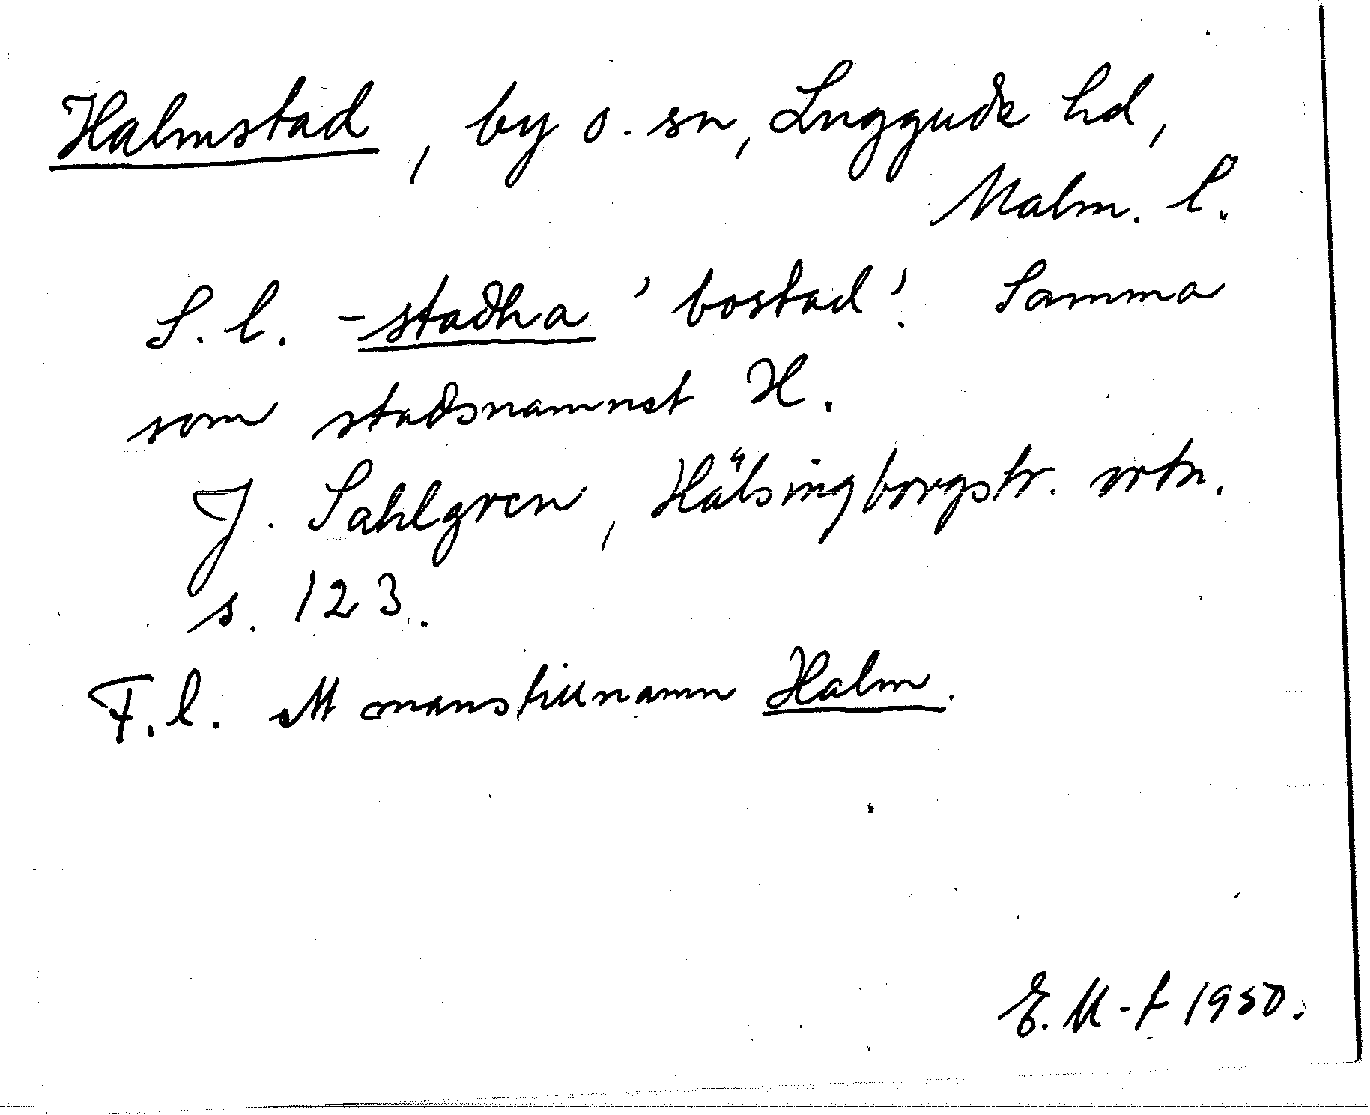 Halmstad, by o. sn, Luggude hd,
Malm. l.
S. l. -stadha 'bostad'. Samma
som stadsnamnet H.
J. Sahlgren, Hälsingborgstr. ortn.
s. 123.
F. l. ett manstillnamn Halm.
E. M-t 1950.